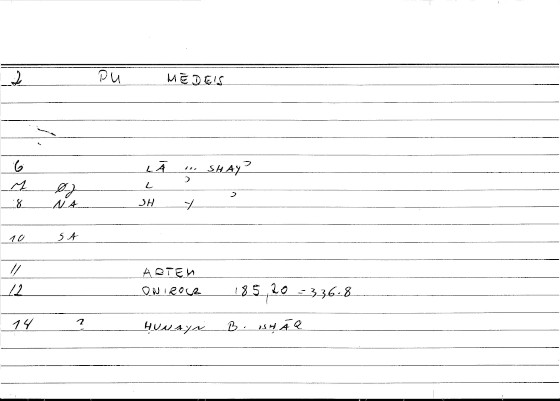 2 PU MĒDEIS
6 LĀ ... SHAY?
L ?
8 NA SH Y ?
10 SA
11 ARTEM
12 ONIROCR 185,20 = 336.8
14 ? HUNAYN B. ISHĀQ